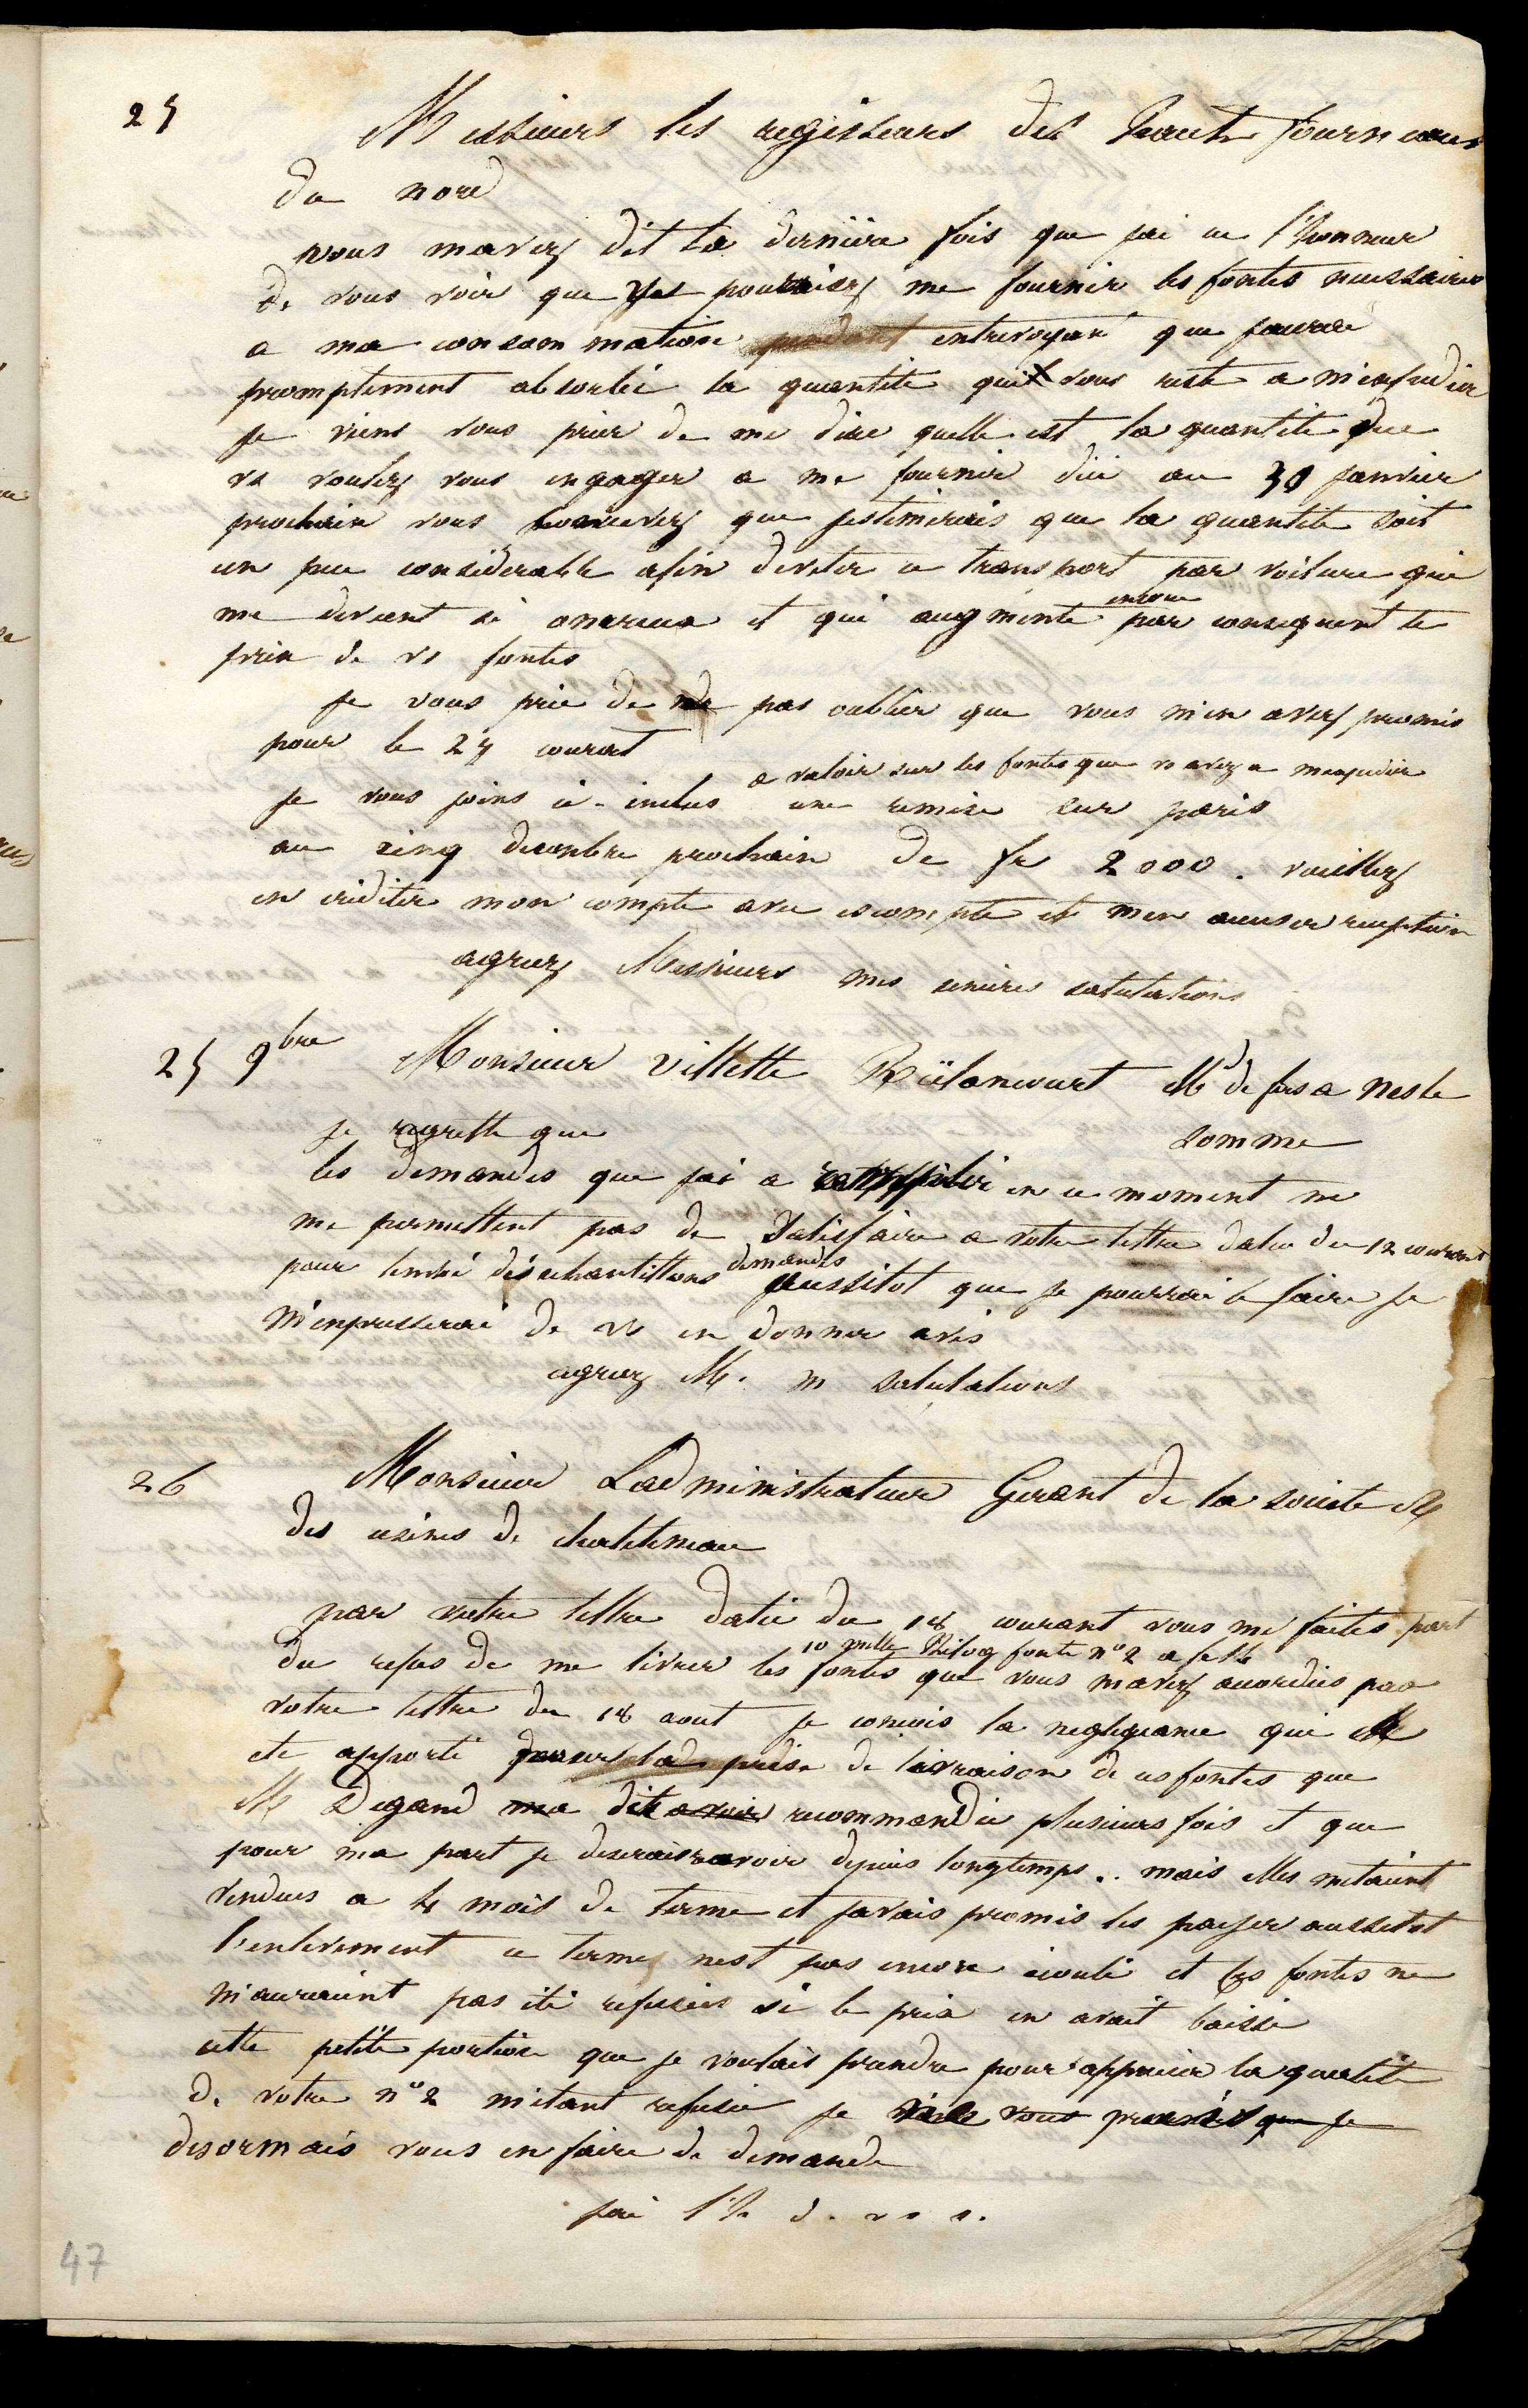 25
Messieurs les regisseurs des haut fourneaux
du nord
vous mavez dit la derniere fois que jai eu l'honneur
de vous voir que vs pourriez me fournir les fontes necessaires
a ma consommation entrevoyant que jaurai
promptement absorbé la quantite qui vous reste a m'expedier
je viens vous prier de me dire quelle est la quantite que
vs voulez vous engager a me fournir dici au 30 janvier
prochain vous concevez que jestimerais que la quantite soit
un peu considerable afin deviter ce transport par voiture qui
me devient si onereux et qui augmente encore par consequent le
prix de vs fontes
je vous prie de ne pas oublier que vous m'en avez promis
pour le 25 courant
je vous joins ci-inclus a valoir sur les fontes que vs avez a mexpedier une remise sur paris
au cinq decembre prochain de fr 2000. veuillez
en créditer mon compte avec escompte et men accuser reception
agreez Messieurs mes sincères salutations
25 9bre Monsieur Villette Md de fers a Nesle
Somme
je regrette que
les demandes que jai a remplir en ce moment ne
me permettent pas de satisfaire a votre lettre datee du 12 courant
pour lenvoi des echantillons demandés aussitot que je pourrai le faire je
m'enpresserai de vs en donner avis
agreez M. m salutations
26 Monsieur Ladministrateur Gerant de la societe
des usines de chatelineau
par votre lettre datée du 18 courant vous me faites part
du refus de me livrer les 10 mille Kilog fonte n° 2 a fr 16 fontes que vous mavez accordées par
votre lettre du 18 aout je conçois la negligeance qui a
ete apporté pour la prise de livraison de ces fontes que
M Degand ma dit avoir recommandée plusieurs fois et que
pour ma part je desirais avoir depuis longtemps.. mais elles metaient
vendues a 4 mois de terme et javais promis les payer aussitot
l'enlevement ce terme nest pas encore écoulé et ces fontes ne
m'auraient pas été refusées si le prix en avait baissé
cette petite portion que je voulais prendre pour apprecier la qualité
de votre n° 2 m'etant refusée je
desormais vous en faire de demande
jai l'h d. v s.
47